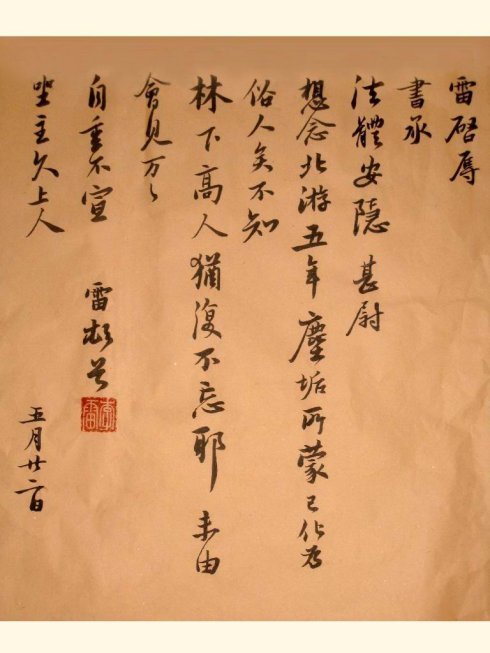 雷啓辱
書承
法體安隱 甚尉
想念北游五年塵垢所蒙已化為
俗人矣不知
林下高人猶復不忘耶 未由
會見万〻
自重不宣 雷頓首
坐主久上人
五月廿二日